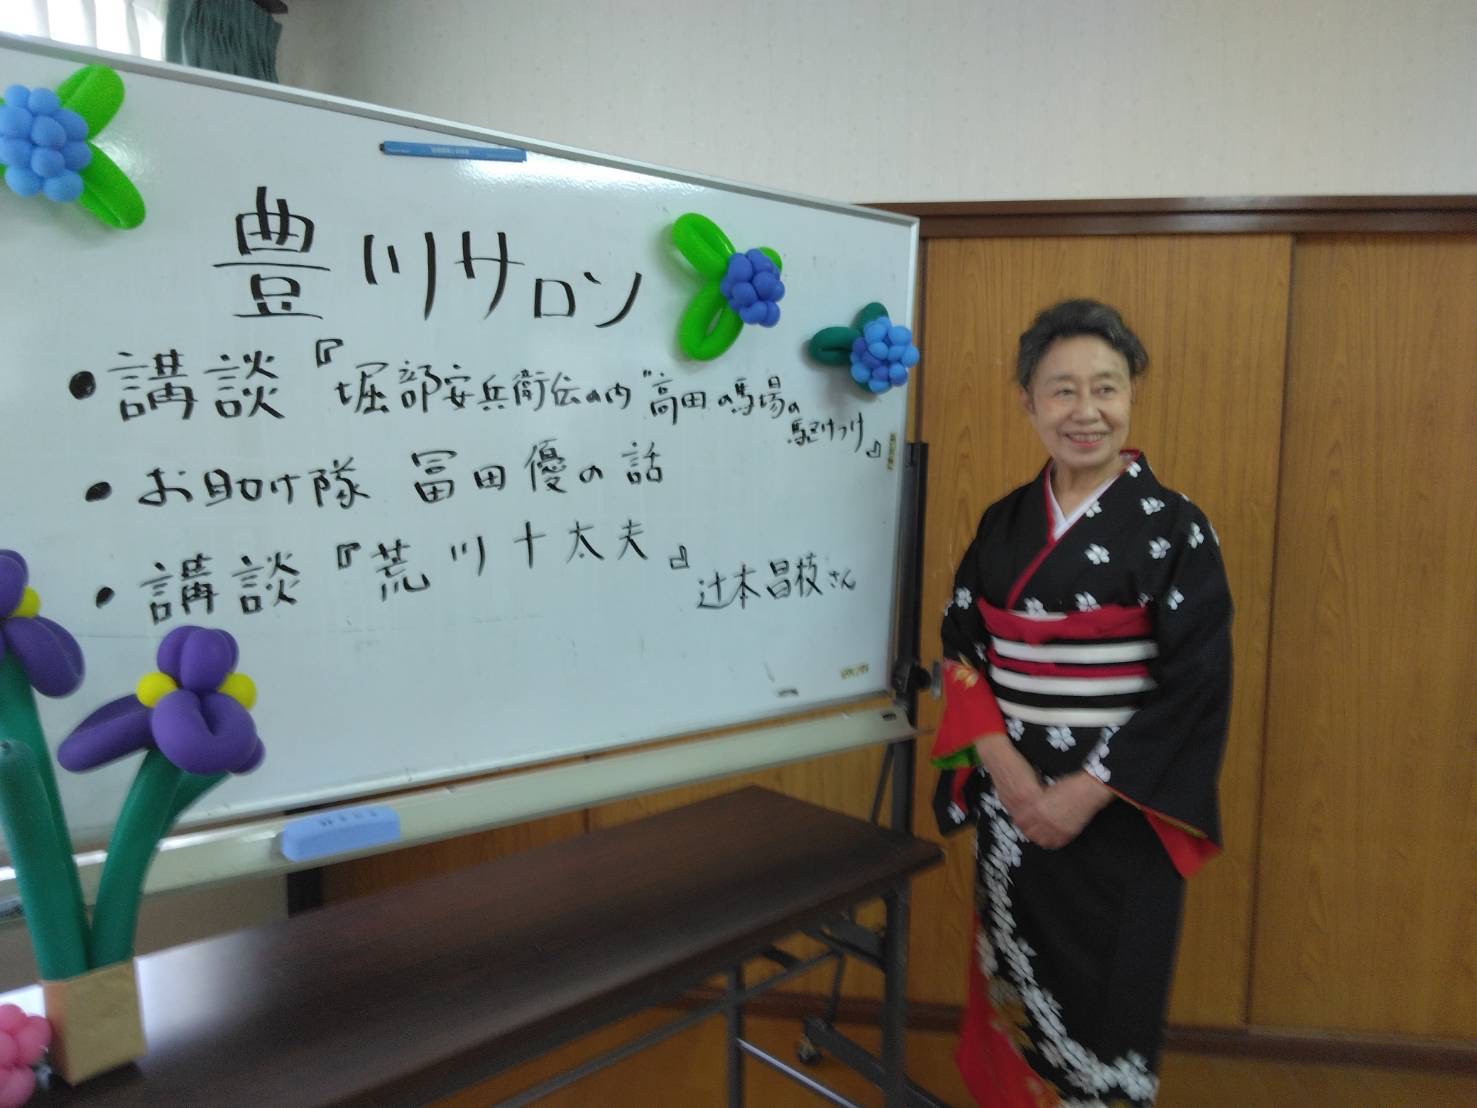 豊川サロン
・講談『堀部安兵衛伝の内"高田の馬場の
駆けつけ』
・お助け隊 冨田優の話
・講談『荒川十太夫』
辻本昌枝さん